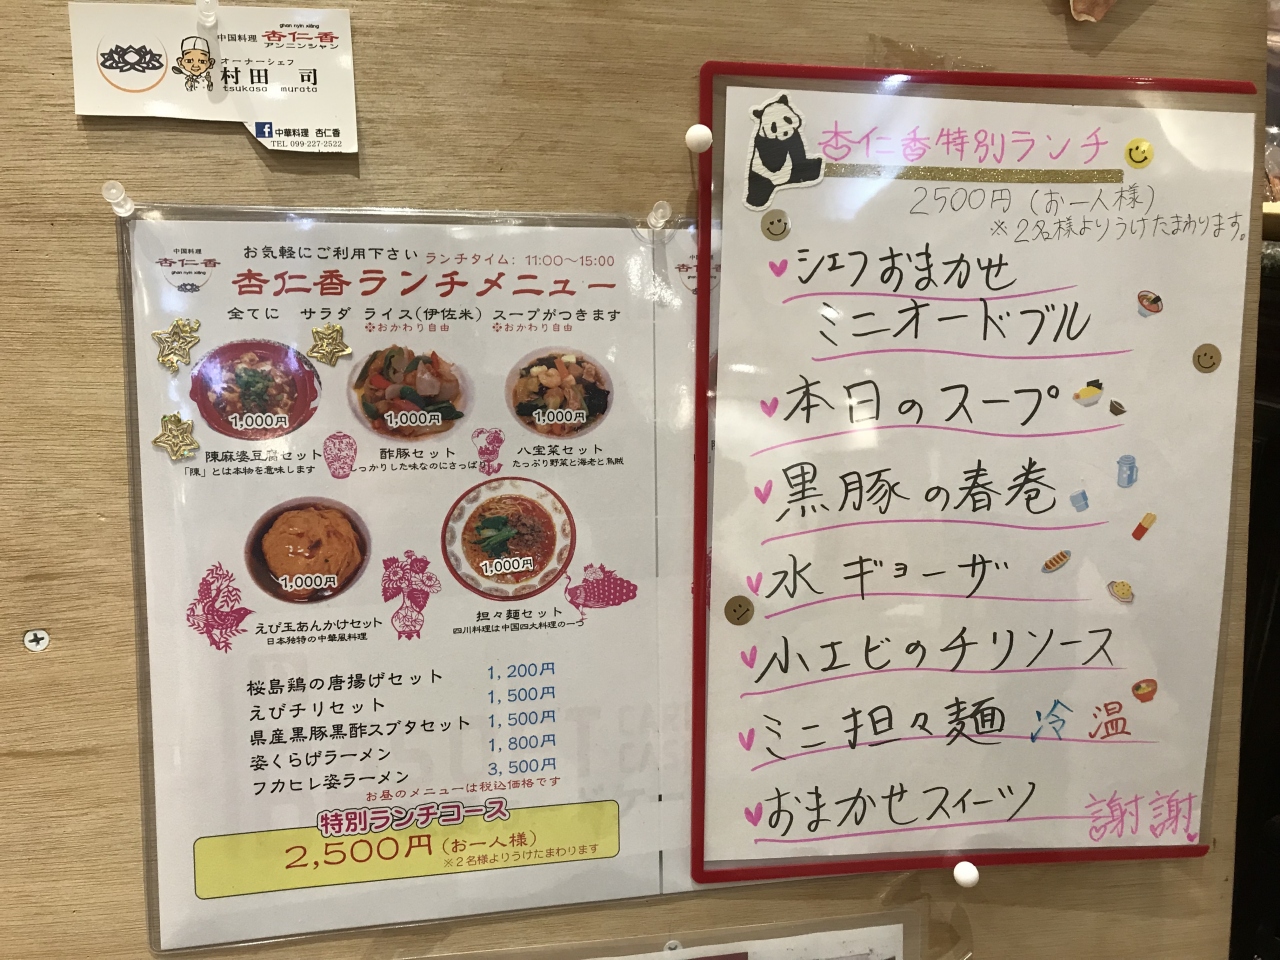 ghan nyin xiāng
中国料理 杏仁香
アンニンシャン
オーナーシェフ
村田 司
tsukasa murata
中華料理 杏仁香
TEL 099-227-2522
中国料理
杏仁香
ghan nyin xiāng
お気軽にご利用下さい ランチタイム: 11:00〜15:00
杏仁香ランチメニュー
全てに サラダ ライス(伊佐米) スープがつきます
※おかわり自由 ※おかわり自由
1,000円 1,000円 1,000円
陳麻婆豆腐セット 酢豚セット 八宝菜セット
「陳」とは本物を意味します しっかりした味なのにさっぱり たっぷり野菜と海老と烏賊
1,000円 1,000円
えび玉あんかけセット 担々麺セット
日本独特の中華風料理 四川料理は中国四大料理の一つ
桜島鶏の唐揚げセット 1,200円
えびチリセット 1,500円
県産黒豚黒酢スブタセット 1,500円
姿くらげラーメン 1,800円
フカヒレ姿ラーメン 3,500円
お昼のメニューは税込価格です
特別ランチコース
2,500円(お一人様)
※2名様よりうけたまわります
杏仁香特別ランチ
2500円(お一人様)
※2名様よりうけたまわります。
シェフおまかせ
ミニオードブル
本日のスープ
黒豚の春巻
水ギョーザ
小エビのチリソース
ミニ担々麺 冷 温
おまかせスイーツ 謝謝